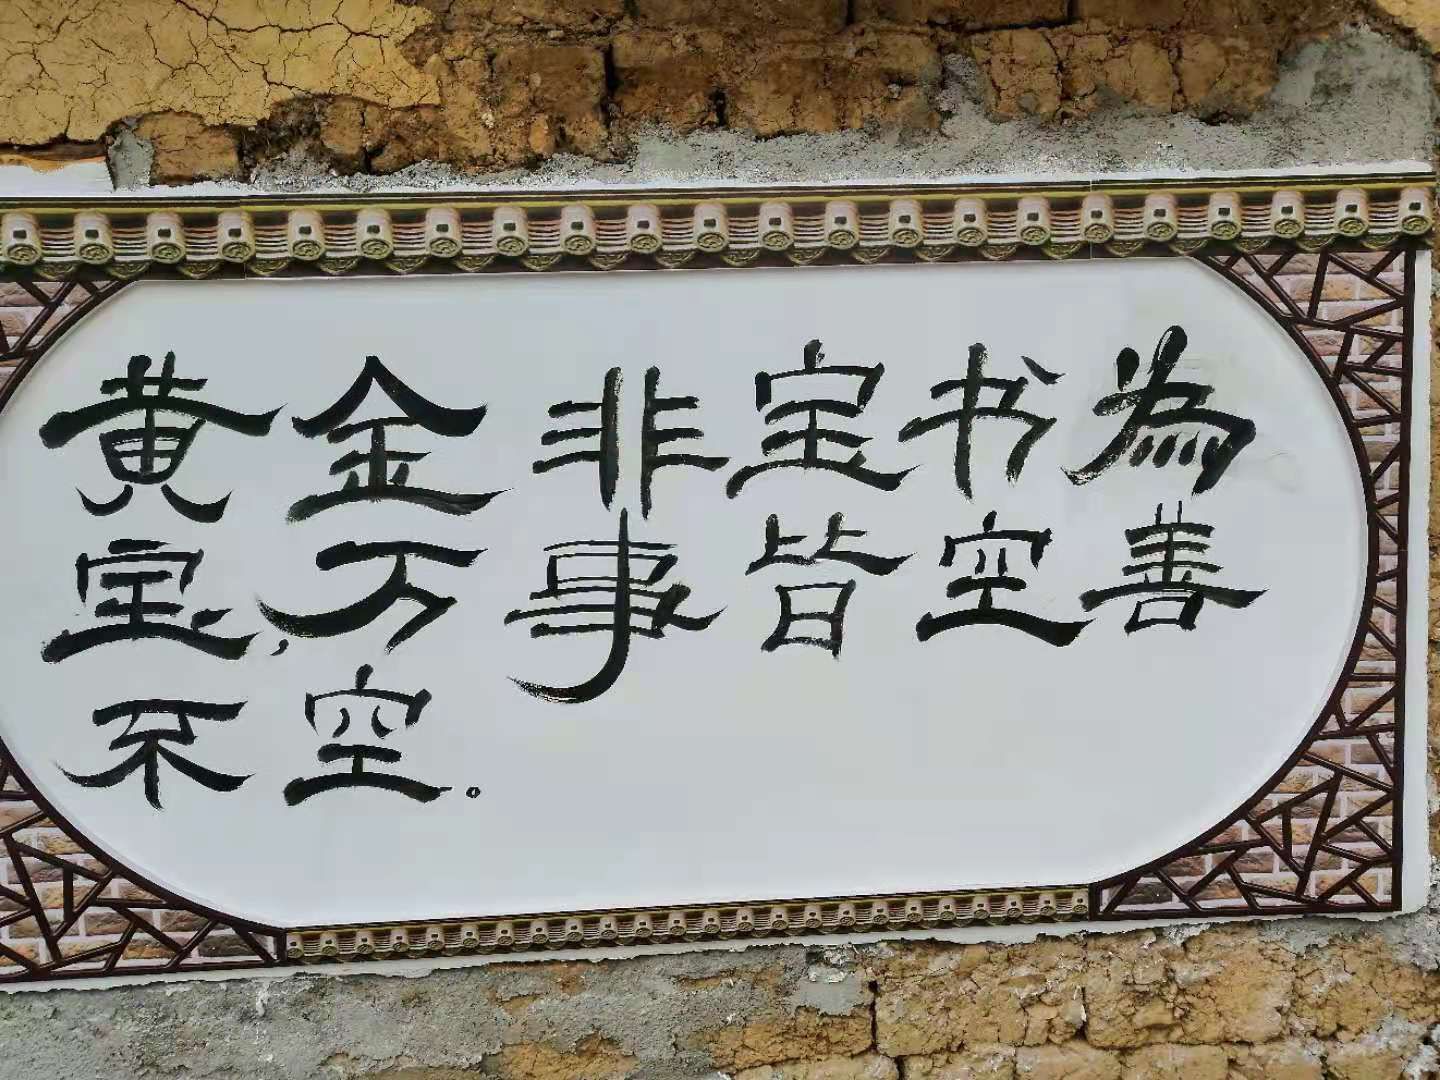 黄金非宝书为
宝，万事皆空善
不空。